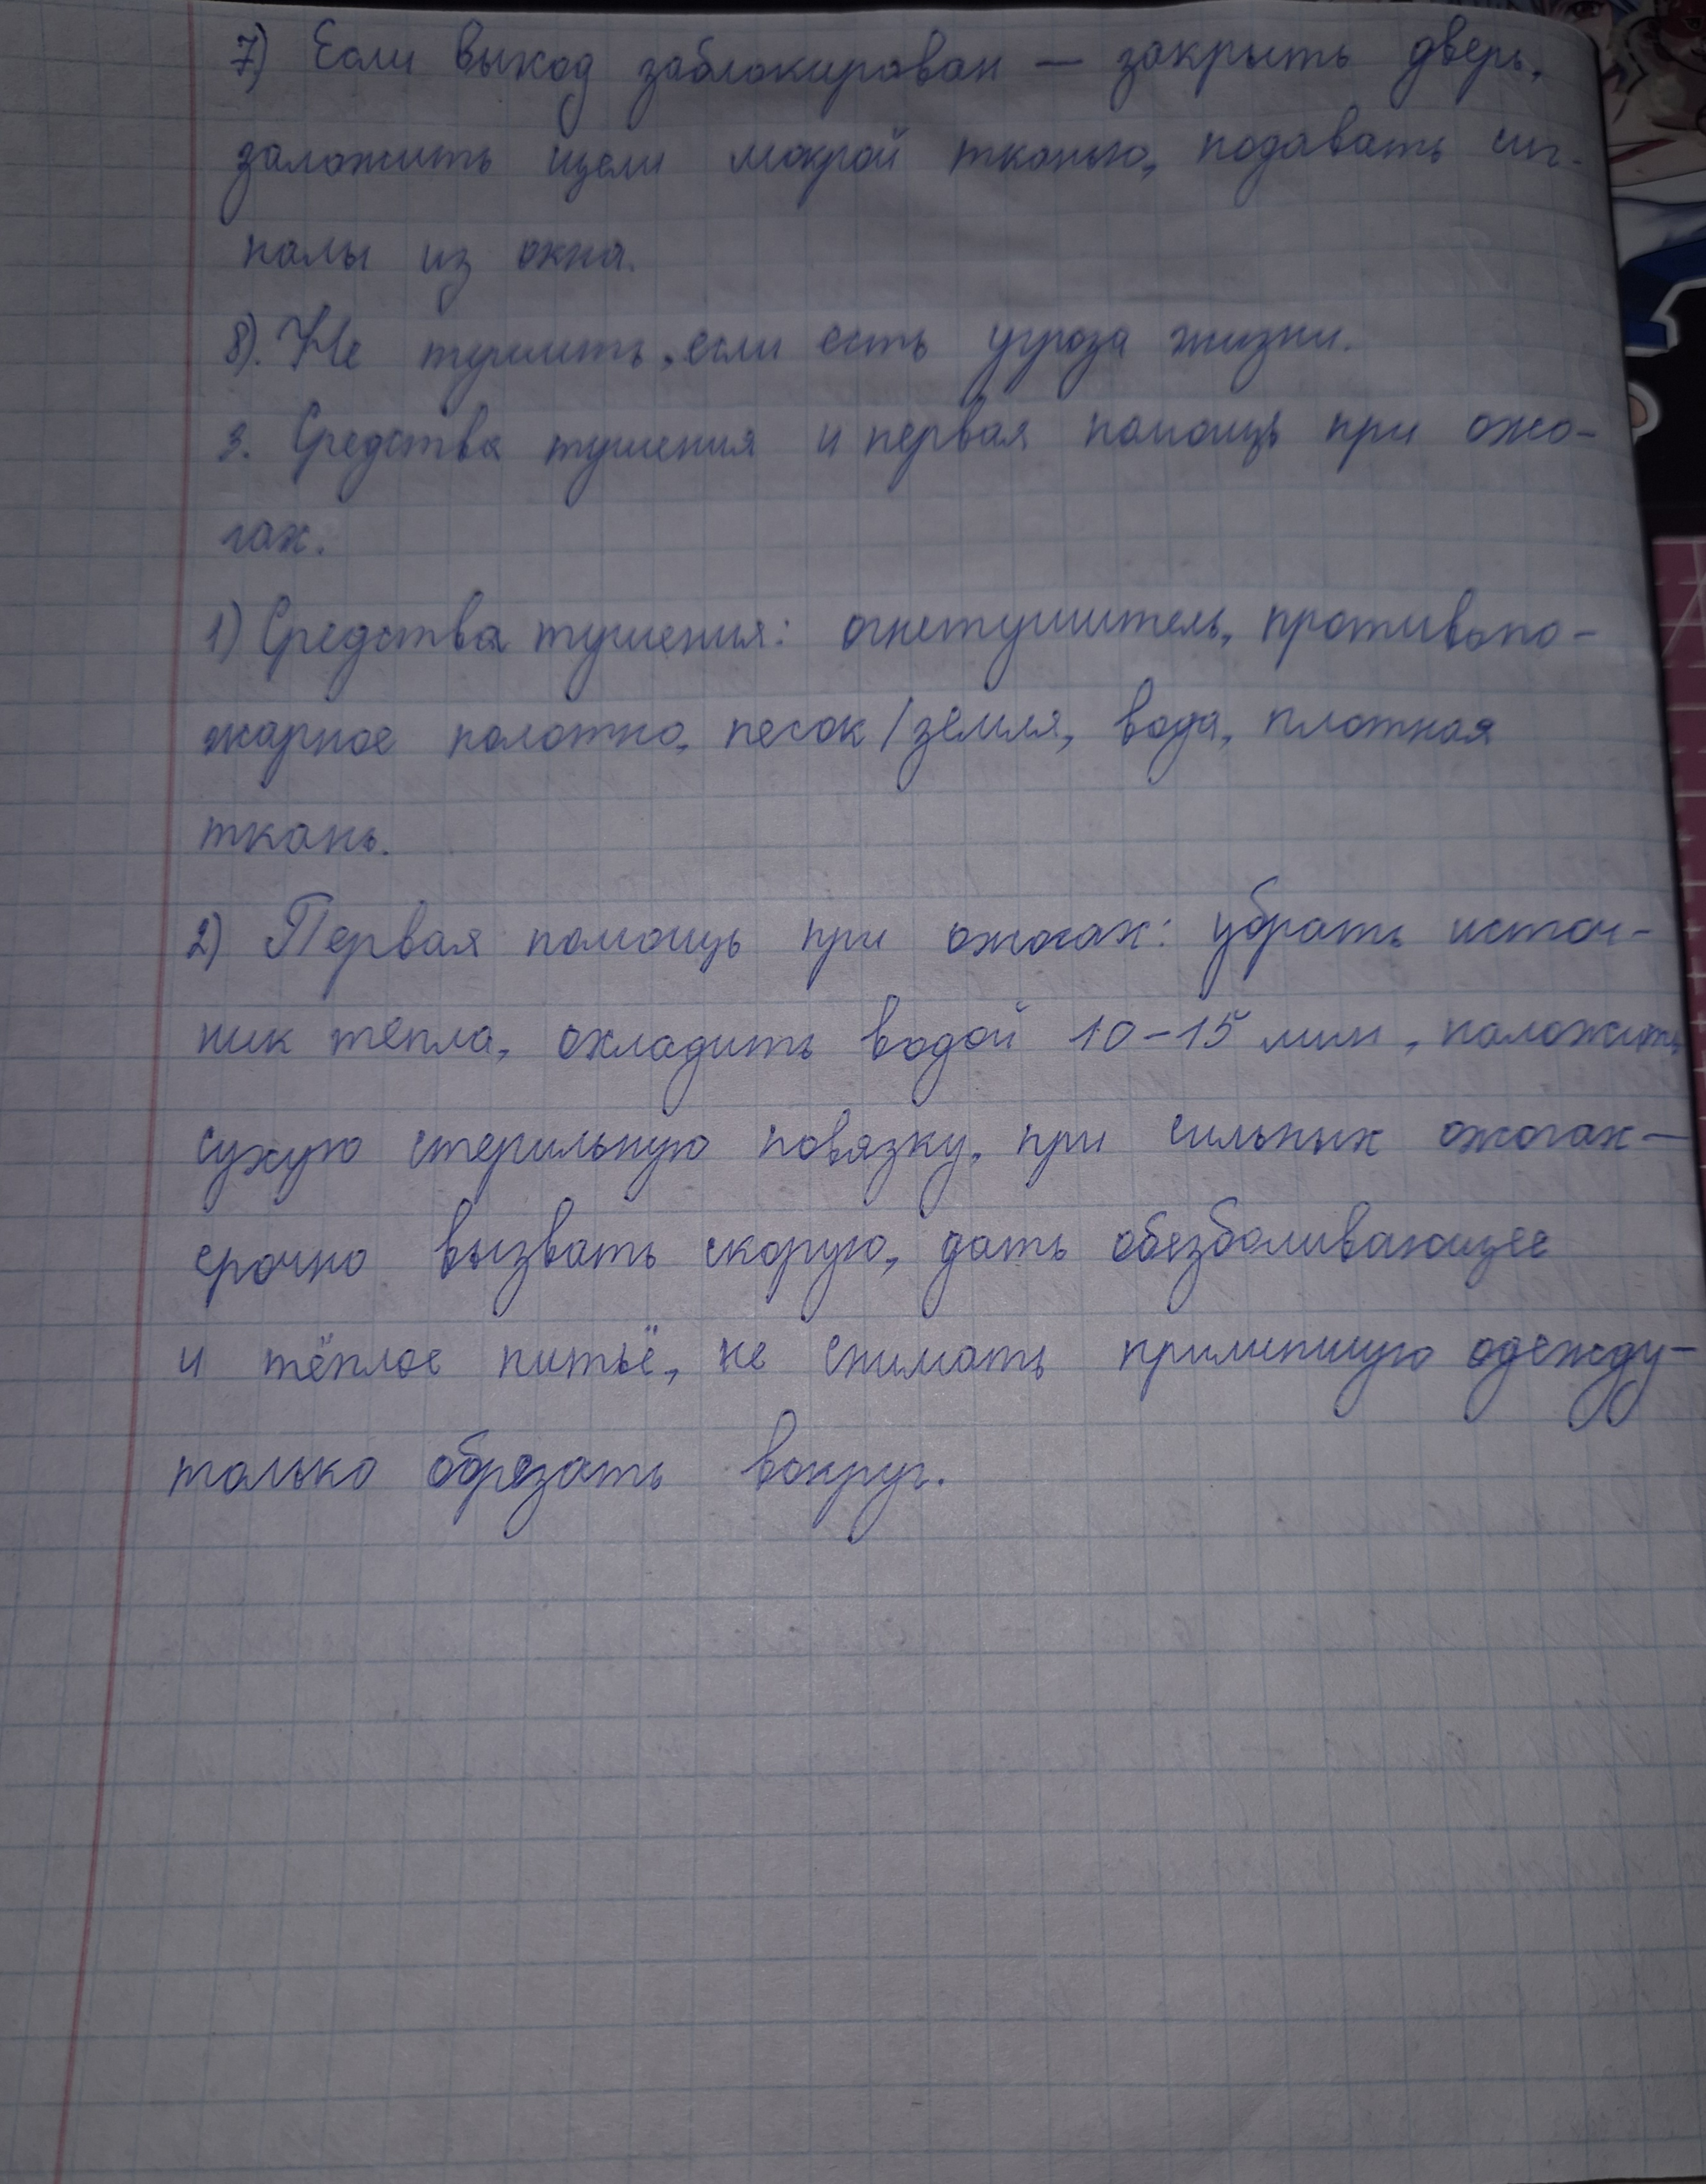 7) Если выход заблокирован — закрыть дверь,
заложить щели мокрой тканью, подавать сиг-
налы из окна.
8). Не тушить, если есть угроза жизни.
3. Средства тушения и первая помощь при ожо-
гах.
1) Средства тушения: огнетушитель, противопо-
жарное полотно, песок/земля, вода, плотная
ткань.
2) Первая помощь при ожогах: убрать источ-
ник тепла, охладить водой 10-15 мин, наложить
сухую стерильную повязку, при сильных ожогах —
срочно вызвать скорую, дать обезболивающее
и тёплое питьё, не снимать прилипшую одежду -
только обрезать вокруг.